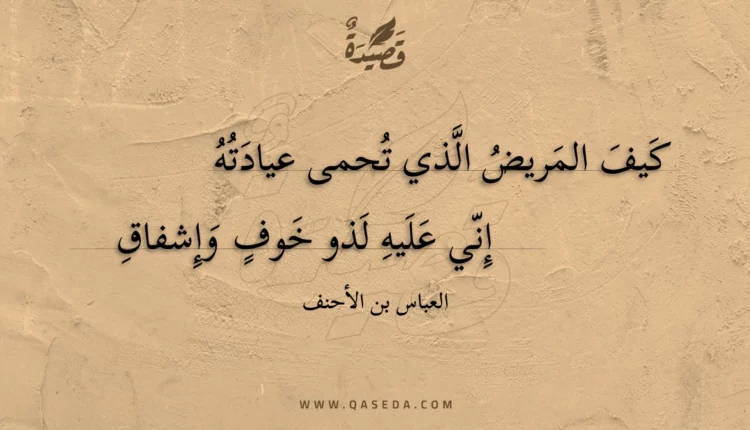 قَصيْدَةٌ
كَيفَ المَريضُ الَّذي تُحمى عيادَتُهُ
إِنّي عَلَيهِ لَذو خَوفٍ وَإِشفاقِ
العباس بن الأحنف
WWW.QASEDA.COM